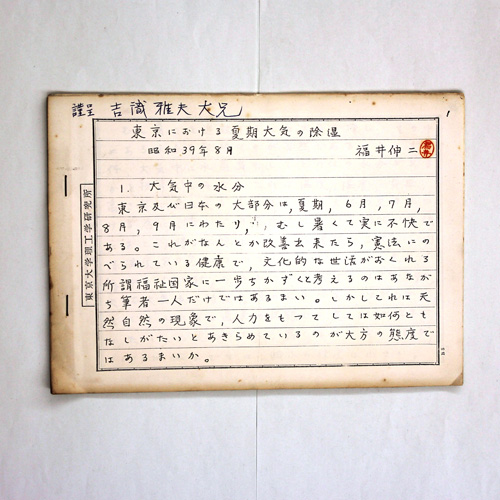 謹呈 吉識雅夫大兄
1
東京における夏期大気の除湿
昭和39年8月 福井伸二
1. 大気中の水分
東京及び日本の大部分は,夏期, 6月, 7月,
8月, 9月にわたり, むし暑くて実に不快で
ある。これがなんとか改善出来たら,憲法にの
べられている健康で, 文化的な世活がおくれる
所謂福祉国家に一歩ちかずくと考えるのはあなが
ち筆者一人だけではあるまい。しかしこれは天
然自然の現象で,人力をもってしては如何とも
なしがたいとあきらめているのが大方の態度で
はあるまいか。
東京大学理工学研究所